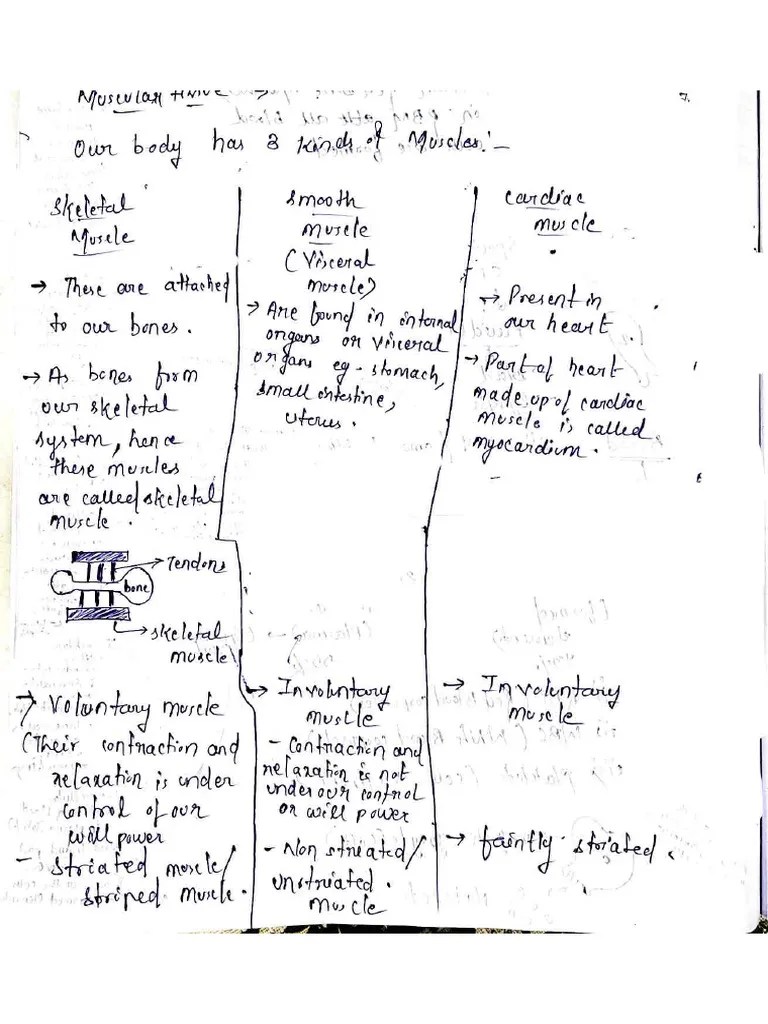 Muscular tissue →
7.
Our body has 3 kinds of Muscles:-
Skeletal
Muscle
→ These are attached
to our bones.
→ As bones from
our skeletal
system, hence
these muscles
are called skeletal
muscle.
→ Tendons
bone
→ skeletal
muscle
→ Voluntary muscle
(Their contraction and
relaxation is under
control of our
will power
- Striated muscle/
striped Muscle.
Smooth
muscle
(Visceral
muscle)
→ Are found in internal
organs or visceral
organs eg- stomach,
small intestine,
uterus.
→ Involuntary
muscle
- Contraction and
relaxation is not
under our control
or will power
- Non striated/
unstriated.
Muscle
Cardiac
muscle
→ Present in
our heart.
→ Part of heart
made up of cardiac
muscle is called
myocardium.
→ Involuntary
muscle
→ faintly striated.